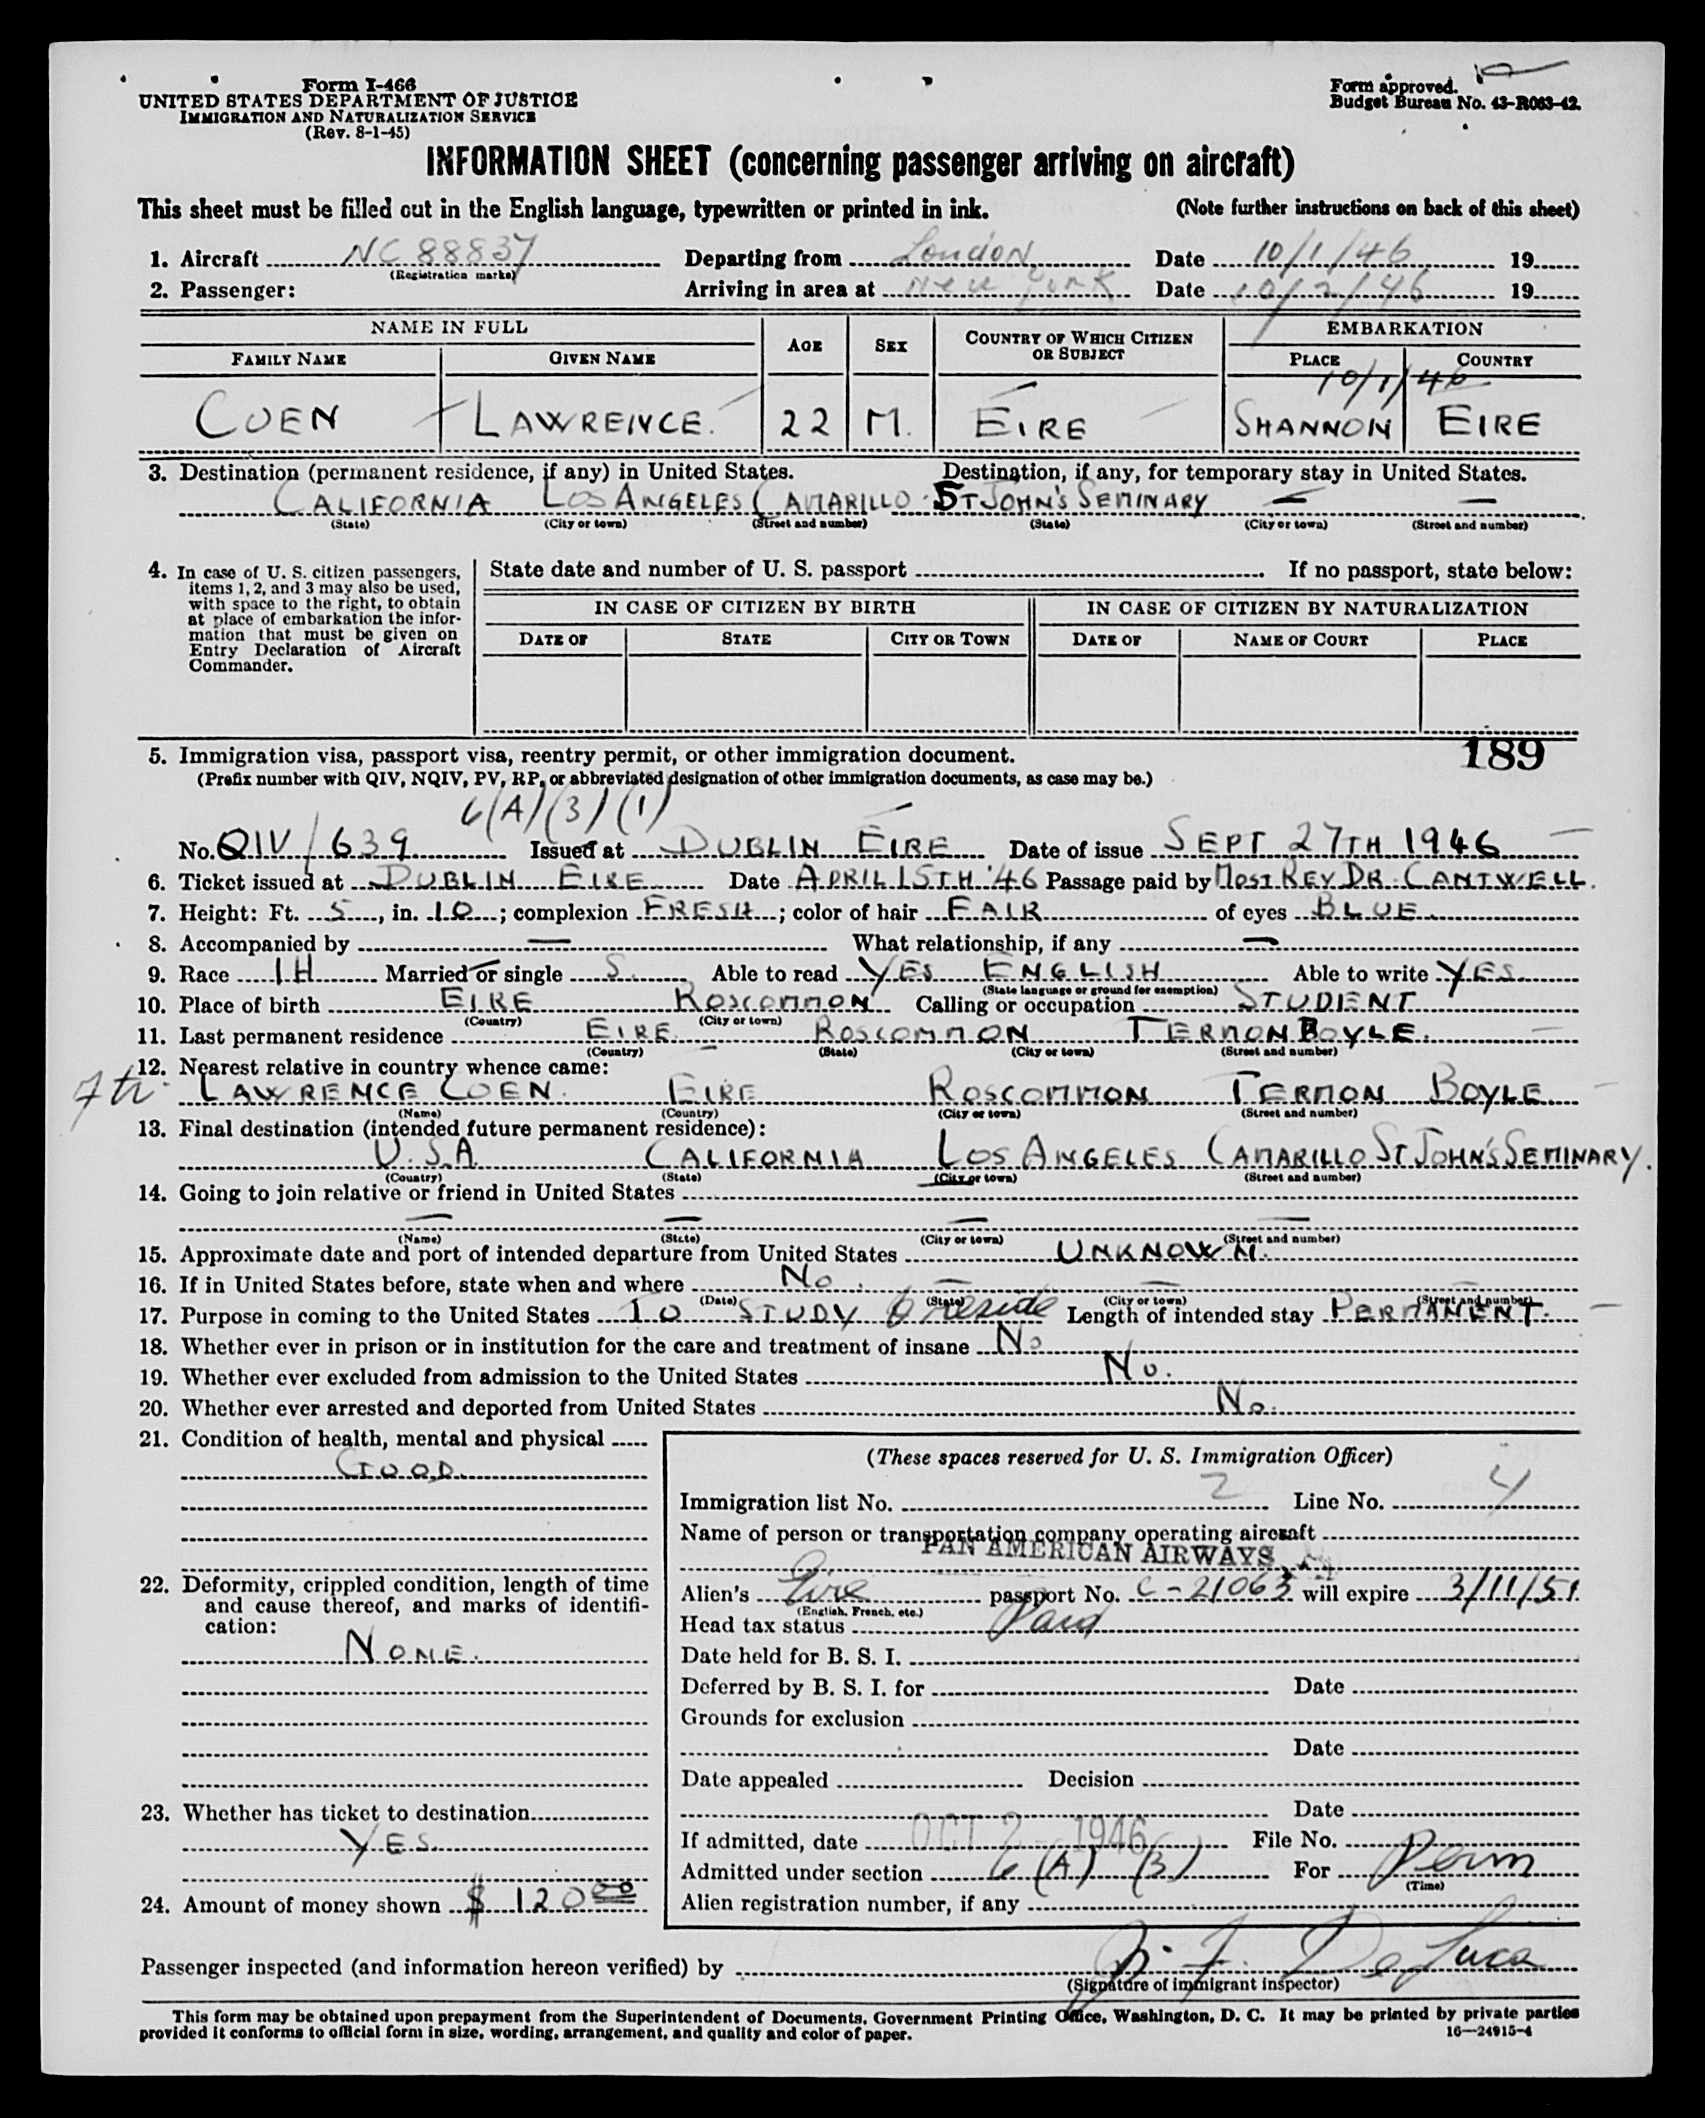 Form I-466
UNITED STATES DEPARTMENT OF JUSTICE
IMMIGRATION AND NATURALIZATION SERVICE
(Rev. 8-1-45)
Form approved.
Budget Bureau No. 43-R063-42.
INFORMATION SHEET (concerning passenger arriving on aircraft)
This sheet must be filled out in the English language, typewritten or printed in ink. (Note further instructions on back of this sheet)
1. Aircraft NC 88837 Departing from London Date 10/1/46 19
(Registration marks)
2. Passenger: Arriving in area at New York Date 10/2/46 19
NAME IN FULL AGE SEX COUNTRY OF WHICH CITIZEN OR SUBJECT EMBARKATION
FAMILY NAME GIVEN NAME PLACE COUNTRY
10/1/46
COEN LAWRENCE. 22 M. EIRE SHANNON EIRE
3. Destination (permanent residence, if any) in United States. Destination, if any, for temporary stay in United States.
CALIFORNIA LOS ANGELES CAMARILLO ST JOHN'S SEMINARY — —
(State) (City or town) (Street and number) (State) (City or town) (Street and number)
4. In case of U. S. citizen passengers, items 1, 2, and 3 may also be used, with space to the right, to obtain at place of embarkation the information that must be given on Entry Declaration of Aircraft Commander.
State date and number of U. S. passport If no passport, state below:
IN CASE OF CITIZEN BY BIRTH IN CASE OF CITIZEN BY NATURALIZATION
DATE OF STATE CITY OR TOWN DATE OF NAME OF COURT PLACE
189
5. Immigration visa, passport visa, reentry permit, or other immigration document.
(Prefix number with QIV, NQIV, PV, RP, or abbreviated designation of other immigration documents, as case may be.)
6(A)(3)(1)
No. QIV/639 Issued at DUBLIN EIRE Date of issue SEPT 27TH 1946
6. Ticket issued at DUBLIN EIRE Date APRIL 15TH '46 Passage paid by MOST REV DR. CANTWELL.
7. Height: Ft. 5, in. 10; complexion FRESH; color of hair FAIR of eyes BLUE.
8. Accompanied by — What relationship, if any —
9. Race IH Married or single S. Able to read YES ENGLISH Able to write YES
(State language or ground for exemption)
10. Place of birth EIRE ROSCOMMON Calling or occupation STUDENT
(Country) (City or town)
11. Last permanent residence EIRE. ROSCOMMON TERMON BOYLE.
(Country) (State) (City or town) (Street and number)
12. Nearest relative in country whence came:
Fth LAWRENCE COEN. EIRE ROSCOMMON TERMON BOYLE
(Name) (Country) (City or town) (Street and number)
13. Final destination (intended future permanent residence):
U.S.A. CALIFORNIA LOS ANGELES CAMARILLO ST JOHN'S SEMINARY.
(Country) (State) (City or town) (Street and number)
14. Going to join relative or friend in United States
— — — —
(Name) (State) (City or town) (Street and number)
15. Approximate date and port of intended departure from United States UNKNOWN.
16. If in United States before, state when and where No. — — —
(Date) (State) (City or town) (Street and number)
17. Purpose in coming to the United States TO STUDY & reside Length of intended stay PERMANENT.
18. Whether ever in prison or in institution for the care and treatment of insane No
19. Whether ever excluded from admission to the United States No.
20. Whether ever arrested and deported from United States No.
21. Condition of health, mental and physical
GOOD.
22. Deformity, crippled condition, length of time and cause thereof, and marks of identification:
NONE.
23. Whether has ticket to destination
YES.
24. Amount of money shown $ 120 00
(These spaces reserved for U. S. Immigration Officer)
Immigration list No. 2 Line No. 4
Name of person or transportation company operating aircraft
PAN AMERICAN AIRWAYS
Alien's Eire passport No. C-21063 will expire 3/11/51
(English, French, etc.)
Head tax status Paid
Date held for B. S. I.
Deferred by B. S. I. for Date
Grounds for exclusion
Date
Date appealed Decision
Date
If admitted, date OCT 2 1946 File No.
Admitted under section 6(A)(3) For Perm
(Time)
Alien registration number, if any
Passenger inspected (and information hereon verified) by De Luca
(Signature of immigrant inspector)
This form may be obtained upon prepayment from the Superintendent of Documents, Government Printing Office, Washington, D. C. It may be printed by private parties
provided it conforms to official form in size, wording, arrangement, and quality and color of paper. 16—24915-4